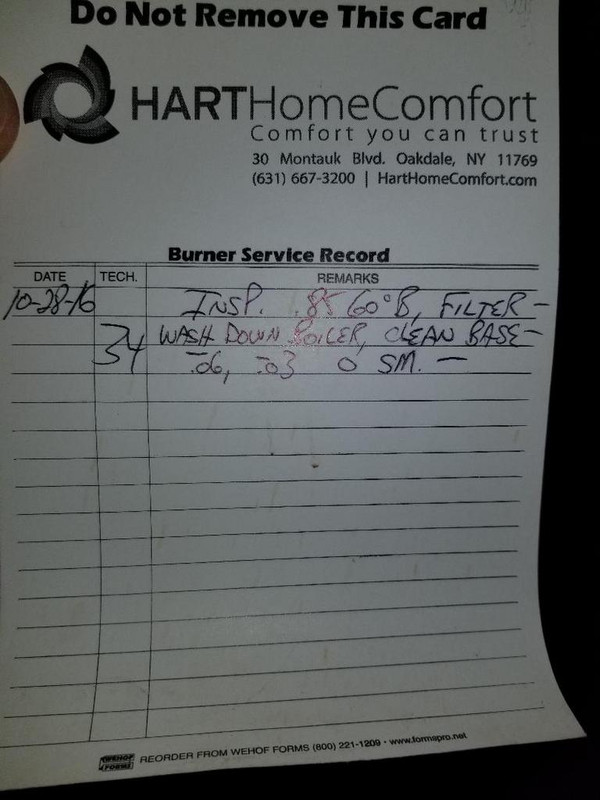 Do Not Remove This Card
HARTHomeComfort
Comfort you can trust
30 Montauk Blvd. Oakdale, NY 11769
(631) 667-3200 | HartHomeComfort.com
Burner Service Record
DATE TECH. REMARKS
10-28-16 INSP. .85 60°B, FILTER -
34 WASH DOWN BOILER, CLEAN BASE -
-.06, -.03 0 SM. -
WEHOF FORMS REORDER FROM WEHOF FORMS (800) 221-1209 · www.formspro.net